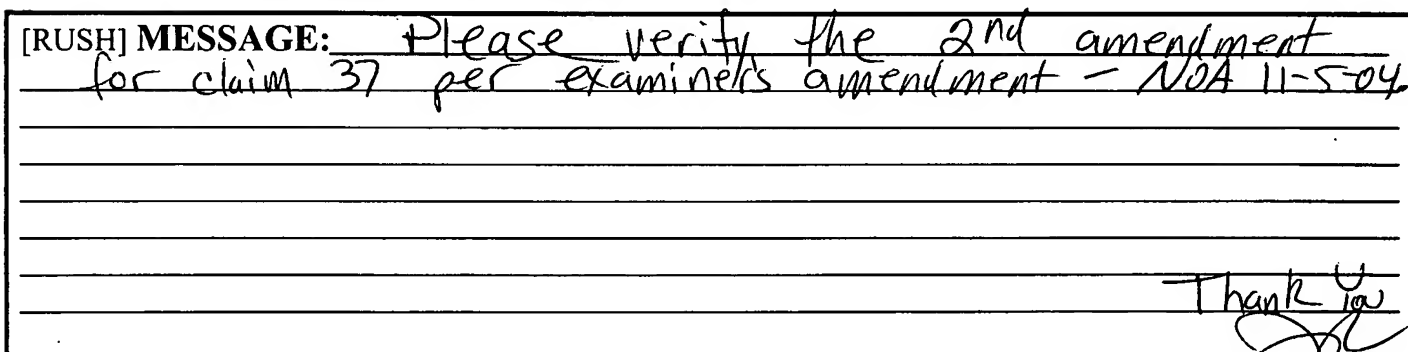 [RUSH] MESSAGE: Please verify the 2nd amendment
for claim 37 per examiner's amendment - NOA 11-5-04.
Thank You